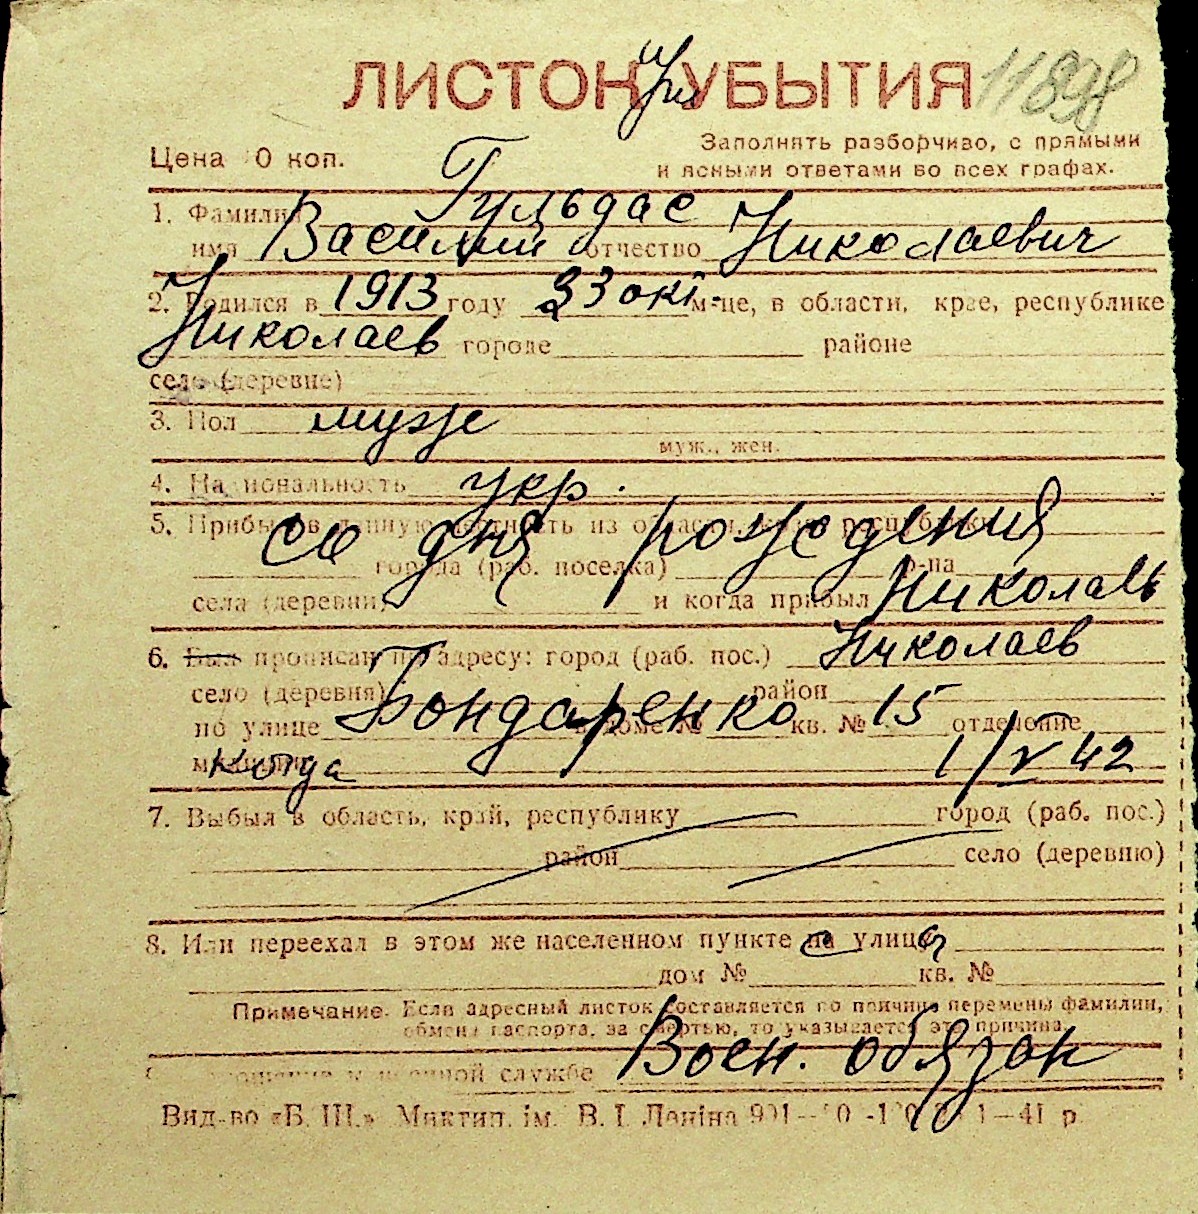 ЛИСТОК УБЫТИЯ 11898
Цена 0 коп.
Заполнять разборчиво, с прямыми
и ясными ответами во всех графах.
1. Фамилия Гульдас
имя Василий отчество Николаевич
2. Родился в 1913 году 23 окт. м-це, в области, крае, республике
Николаев городе районе
селе (деревне)
3. Пол мужс
муж., жен.
4. Национальность укр.
5. Прибыл в данную местность из области, края, республики
со дня рождения
города (раб. поселка) р-на
села (деревни) и когда прибыл Николаев
6. Был прописан по адресу: город (раб. пос.) Николаев
село (деревня) район
по улице Бондаренко в доме № кв. № 15 отделение
милиции когда 1/V 42
7. Выбыл в область, край, республику город (раб. пос.)
район село (деревню)
8. Или переехал в этом же населенном пункте на улицу
дом № кв. №
Примечание. Если адресный листок составляется по причине перемены фамилии,
обмена паспорта, за смертью, то указывается эта причина.
Воен. обязан
военной службе
Вид-во «Б. Ш.» Миктип. ім. В. І. Леніна